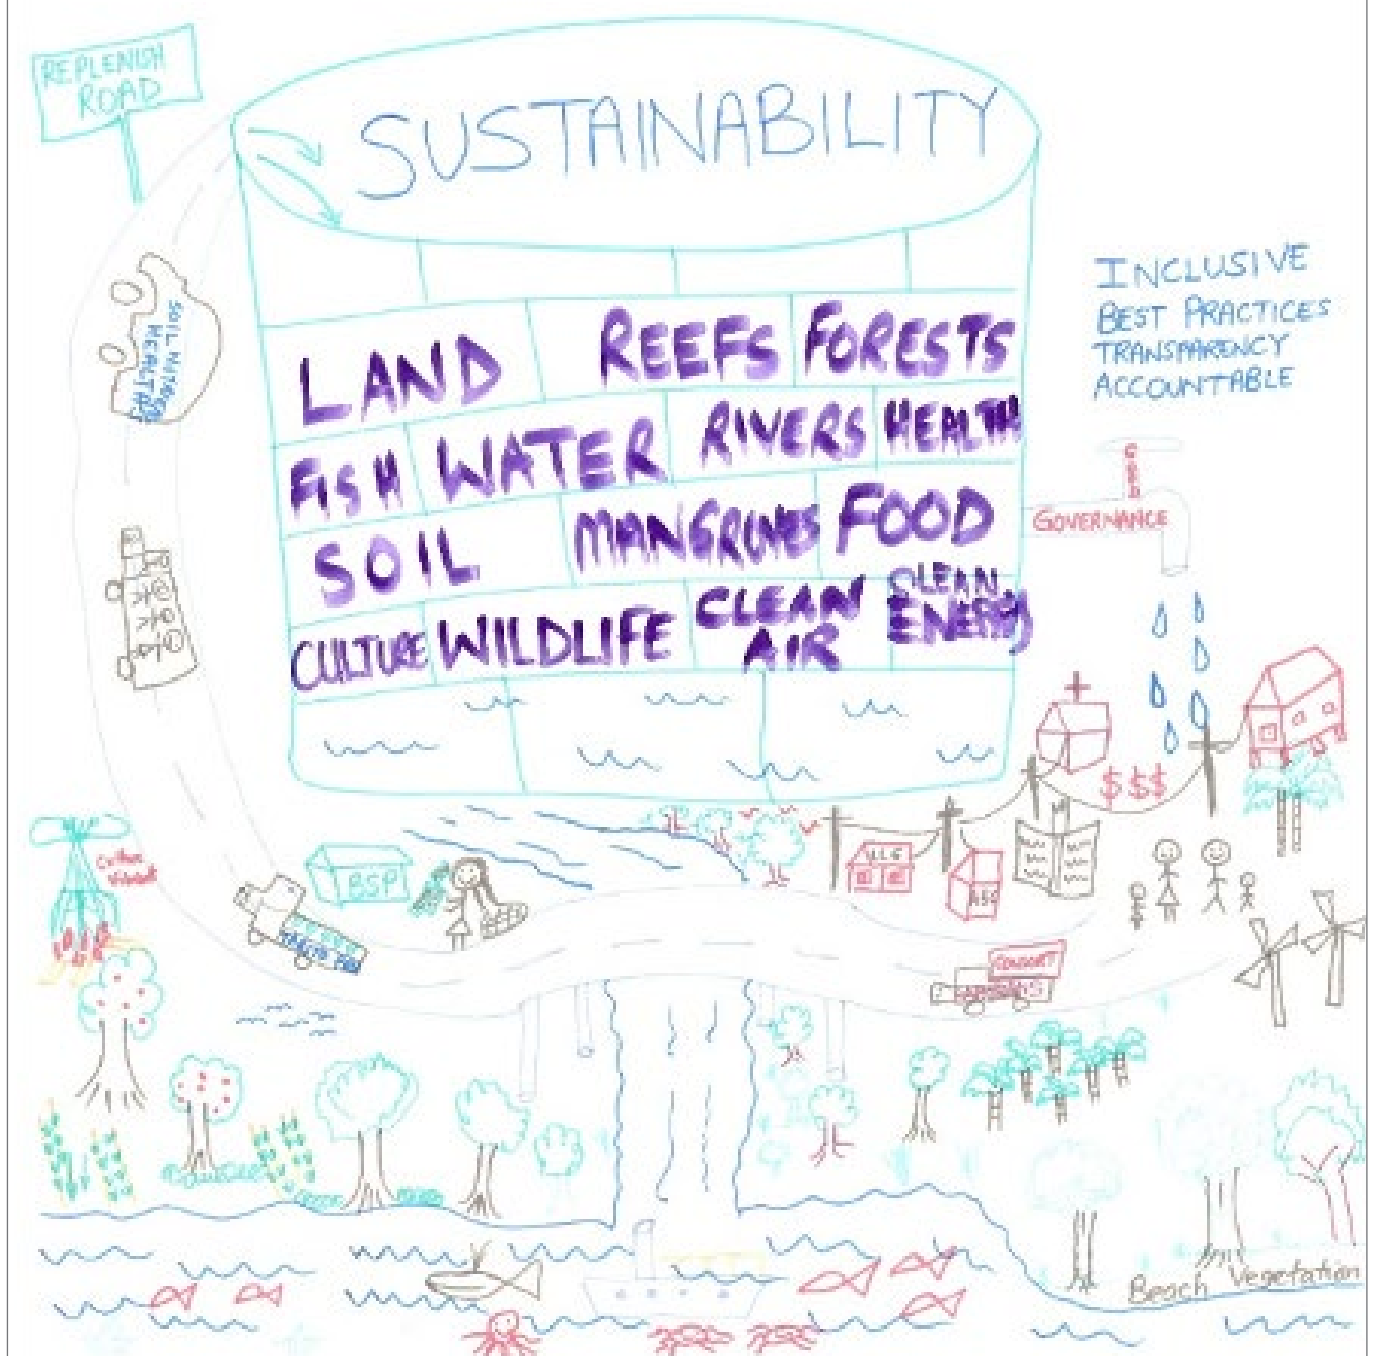 REPLENISH
ROAD
SUSTAINABILITY
INCLUSIVE
BEST PRACTICES
TRANSPARENCY
ACCOUNTABLE
LAND REEFS FORESTS
FISH WATER RIVERS HEALTH
SOIL MANGROVES FOOD
CULTURE WILDLIFE CLEAN
AIR
CLEAN
ENERGY
GOVERNANCE
$ $ $
BSP
Beach Vegetation